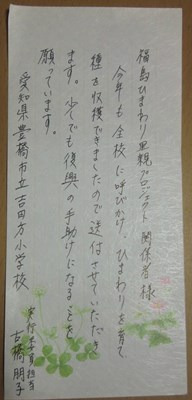 福島ひまわり里親プロジェクト 関係者 様
今年も全校に呼びかけ、ひまわりを育て
種を収穫できましたので送付させていただき
ます。少しでも復興の手助けになることを
願っています。
愛知県豊橋市立吉田方小学校
担当
古橋 朋子